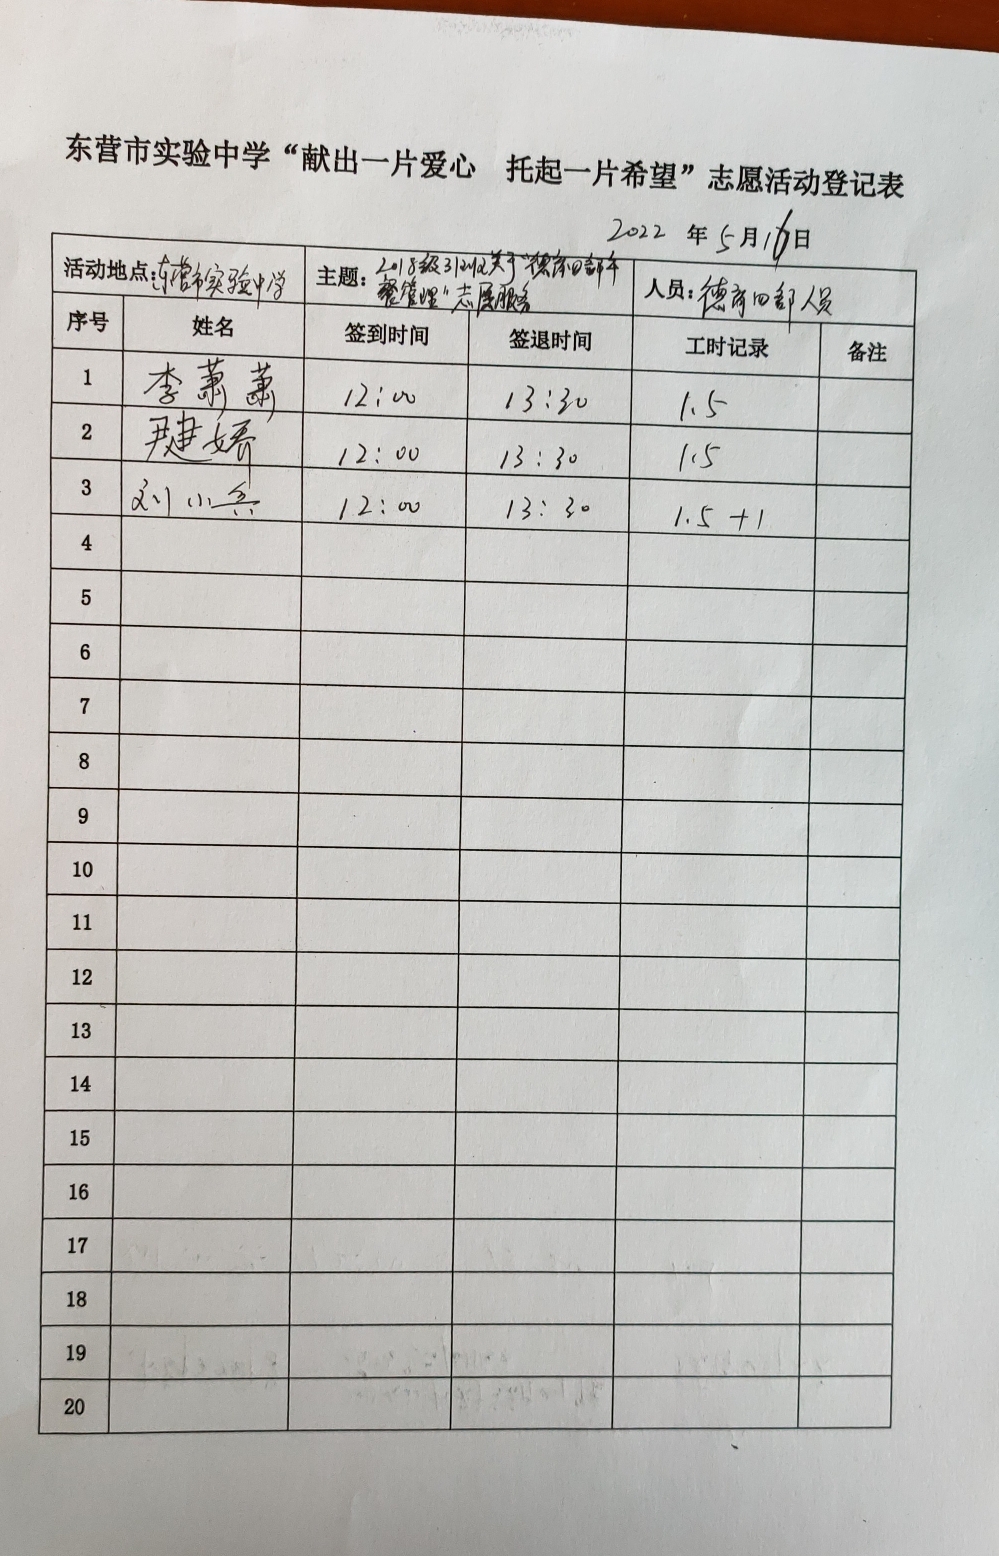 东营市实验中学“献出一片爱心 托起一片希望”志愿活动登记表
2022 年 5 月 日
活动地点:东营市实验中学 主题:2018级 关于“德育四部午 人员:德育四部人员
管理”志愿服务
序号 姓名 签到时间 签退时间 工时记录 备注
1 李萧萧 12:00 13:30 1.5
2 12:00 13:30 1.5
3 刘小兵 12:00 13:30 1.5 +1
4
5
6
7
8
9
10
11
12
13
14
15
16
17
18
19
20